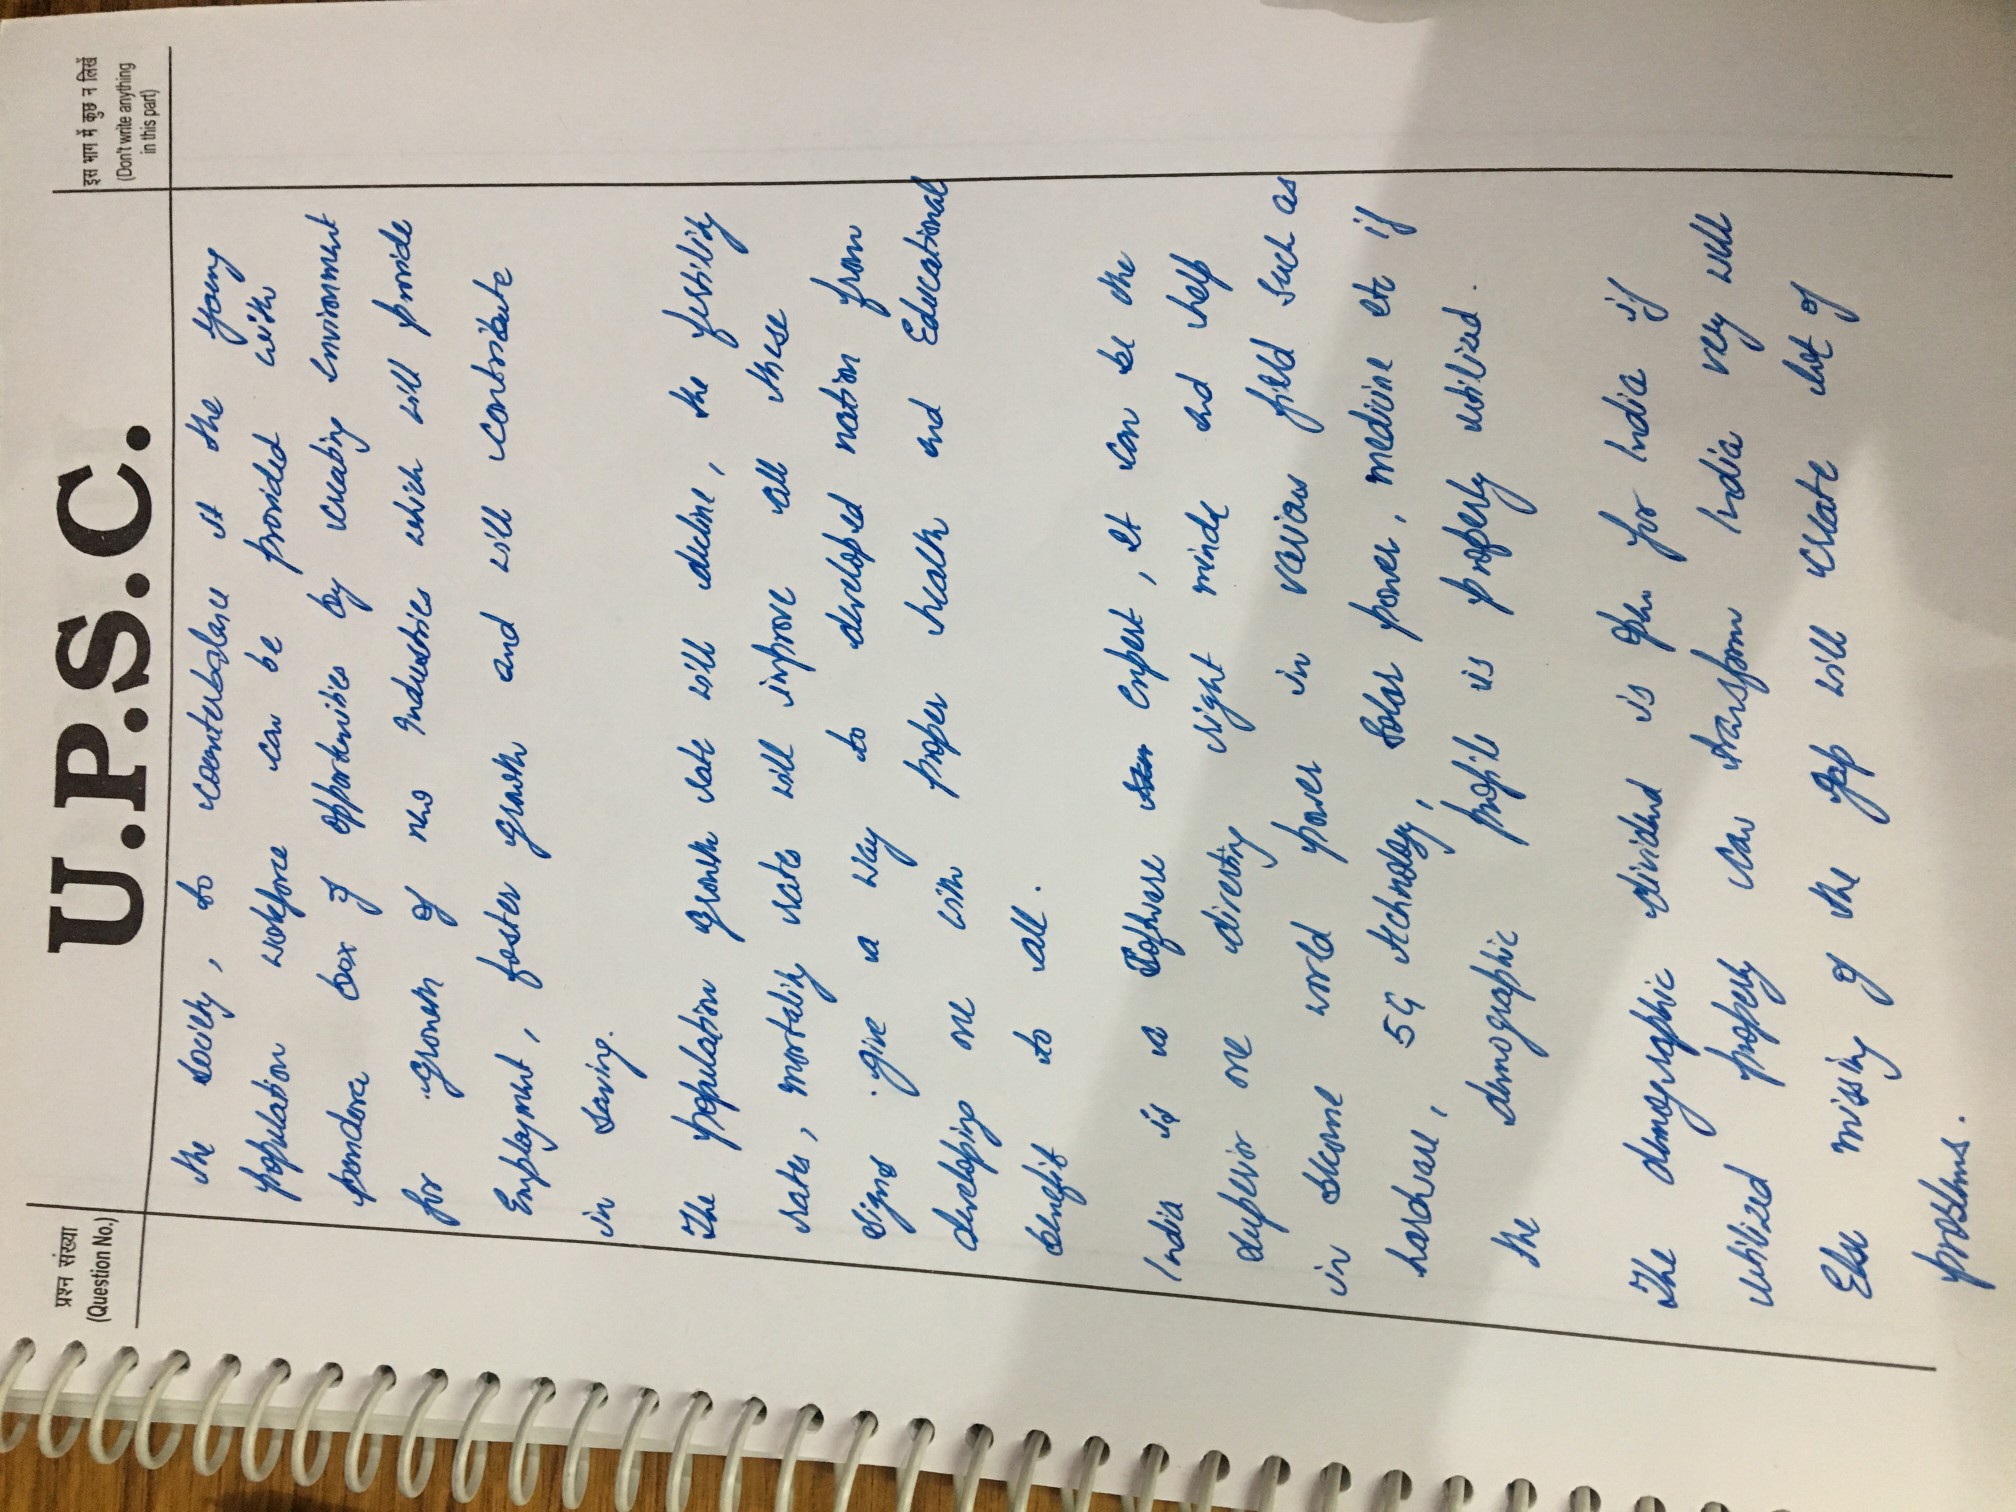 प्रश्न संख्या
(Question No.)
U.P.S.C.
इस भाग में कुछ न लिखें
(Don't write anything
in this part)
the society, to counterbalance it the young
population workforce can be provided with
pandora box of opportunities by creating environment
for growth of new Industries which will provide
Employment, foster growth and will contribute
in saving.
The population growth rate will decline, the fertility
rates, mortality rates will improve all these
signs give a way to developed nation from
developing one with proper health and Educational
benefit to all.
India is a Software expert, it can be the
superior one directing right minds and help
in become world power in various field such as
hardware, 5G technology, Solar power, medicine etc if
the demographic profile is properly utilized.
The demographic dividend is open for India if
utilized properly can transform India very well
Else missing of the gap will create lot of
problems.